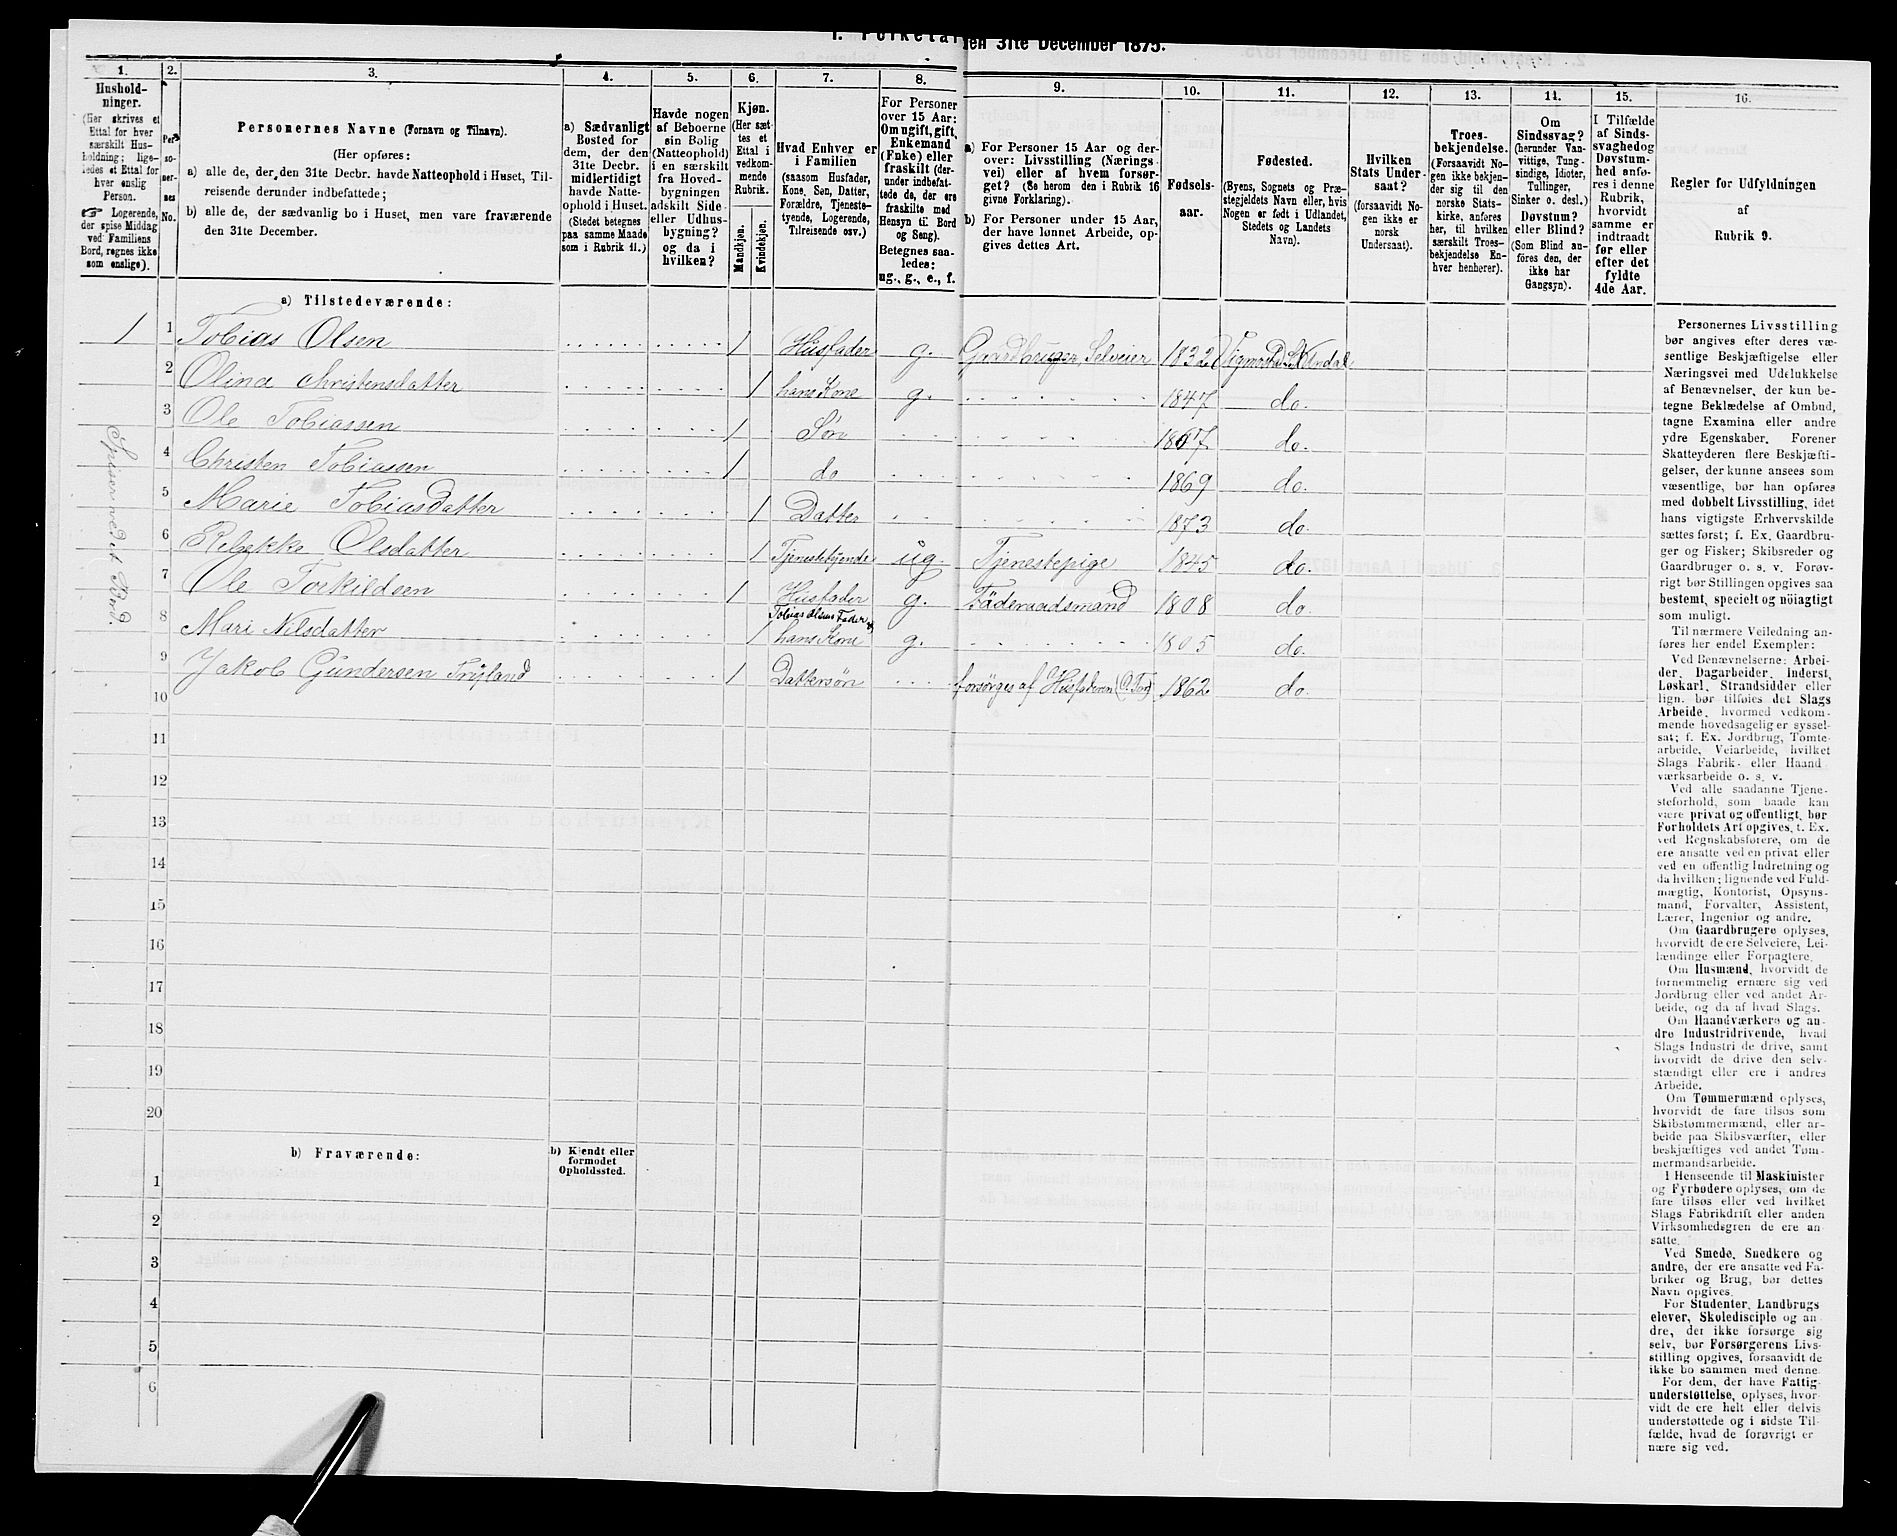 den 31te December 1875.
1.
Hushold-
ninger.
(Her skrives et
Ettal for hver
særskilt Hus-
holdning; lige-
ledes et Ettal for
hver enslig
Person.
Logerende,
der spise Middag
ved Familiens
Bord, regnes ikke
som enslige).
2.
Per-
so-
ner-
nes
No.
3.
Personernes Navne (Fornavn og Tilnavn).
(Her opføres:
a) alle de, der den 31te Decbr. havde Natteophold i Huset, Til-
reisende derunder indbefattede;
b) alle de, der sædvanlig bo i Huset, men vare fraværende
den 31te December.
4.
a) Sædvanligt
Bosted for
dem, der den
31te Decbr.
midlertidigt
havde Natte-
ophold i Huset.
(Stedet betegnes
paa samme Maade
som i Rubrik 11.)
5.
Havde nogen
af Beboerne
sin Bolig
(Natteophold)
i en særskilt
fra Hoved-
bygningen
adskilt Side-
eller Udhus-
bygning?
og da i
hvilken?
6.
Kjøn.
(Her sæt-
tes et
Ettal i
vedkom-
mende
Rubrik.
Mandkjøn.
Kvindekjøn.
7.
Hvad Enhver er
i Familien
(saasom Husfader,
Kone, Søn, Datter,
Forældre, Tjeneste-
tyende, Logerende,
Tilreisende osv.)
8.
For Personer
over 15 Aar:
Om ugift, gift,
Enkemand
(Enke) eller
fraskilt (der-
under indbefat-
tede de, der ere
fraskilte med
Hensyn til Bord
og Seng).
Betegnes saa-
ledes:
ug., g., e., f.
9.
a) For Personer 15 Aar og der-
over: Livsstilling (Nærings
vei) eller af hvem forsør-
get? (Se herom den i Rubrik 16
givne Forklaring).
b) For Personer under 15 Aar,
der have lønnet Arbeide, op-
gives dettes Art.
10.
Fødsels-
aar.
11.
Fødested.
(Byens, Sognets og Præ-
stegjeldets Navn eller, hvis
Nogen er født i Udlandet,
Stedets og Landets
Navn).
12.
Hvilken
Stats Under-
saat?
(forsaavidt No-
gen ikke er
norsk
Undersaat).
13.
Troes-
bekjendelse.
(Forsaavidt No-
gen ikke bekjen-
der sig til den
norske Stats-
kirke, anføres
her, til hvilken
særskilt Troes-
bekjendelse En-
hver henhører).
14.
Om
Sindssvag?
(herunder Van-
vittige, Tung-
sindige, Idioter,
Tullinger,
Sinker o. desl.)
Døvstum?
eller Blind?
(Som Blind an-
føres den, der
ikke har
Gangsyn).
15.
I Tilfælde
af Sinds-
svaghed og
Døvstum-
hed anfø-
res i denne
Rubrik,
hvorvidt
samme er
indtraadt
før eller
efter det
fyldte
4de Aar.
16.
Regler for Udfyldningen
af
Rubrik 9.
a) Tilstedeværende:
1 1 Tobias Olsen 1 Husfader g. Gaardbruger, Selveier 1832
2 Olina Christensdatter 1 hans Kone g. 1847 do.
3 Ole Tobiassen 1 Søn 1867 do.
4 Christen Tobiassen 1 do 1869 do.
5 Marie Tobiasdatter 1 Datter 1873 do.
6 Rebekke Olsdatter 1 Tjenestetyende ug. Tjenestepige 1845 do.
7 Ole Torkildsen 1 Husfader g. Føderaadsmand 1808 do.
Tobias Olsens Fader
8 Mari Nilsdatter 1 hans Kone g. 1805 do.
9 Jakob Gundersen Tryland 1 Dattersøn forsørges af Husfaderen (O. Tor) 1862 do.
10
11
12
13
14
15
16
17
18
19
20
Spiser ved et Bord.
b) Fraværende:
b) Kjendt eller
formodet
Opholdssted.
1
2
3
4
5
6
Personernes Livsstilling
bør angives efter deres væ-
sentlige Beskjæftigelse eller
Næringsvei med Udelukkelse
af Benævnelser, der kun be-
tegne Beklædelse af Ombud,
tagne Examina eller andre
ydre Egenskaber. Forener
Skatteyderen flere Beskjæfti-
gelser, der kunne ansees som
væsentlige, bør han opføres
med dobbelt Livsstilling, idet
hans vigtigste Erhvervskilde
sættes først; f. Ex. Gaardbru-
ger og Fisker; Skibsreder og
Gaardbruger o. s. v. Forøv-
rigt bør Stillingen opgives saa
bestemt, specielt og nöiagtigt
som muligt.
Til nærmere Veiledning an-
føres her endel Exempler:
Ved Benævnelserne: Arbei-
der, Dagarbeider, Inderst,
Løskarl, Strandsidder eller
lign. bør tilføies det Slags
Arbeide, hvormed vedkom-
mende hovedsagelig er syssel-
sat; f. Ex. Jordbrug, Tomte-
arbeide, Veiarbeide, hvilket
Slags Fabrik- eller Haand
værksarbeide o. s. v.
Ved alle saadanne Tjene-
steforhold, som baade kan
være privat og offentligt, bør
Forholdets Art opgives, t. Ex.
ved Regnskabsførere, om de
ere ansatte ved en privat eller
ved en offentlig Indretning og
da hvilken; lignende ved Fuld-
mægtig, Kontorist, Opsyns-
mand, Forvalter, Assistent,
Lærer, Ingeniør og andre.
Om Gaardbrugere oplyses,
hvorvidt de ere Selveiere, Lei-
lændinge eller Forpagtere.
Om Husmænd, hvorvidt de
fornemmelig ernære sig ved
Jordbrug eller ved andet Ar-
beide, og da af hvad Slags.
Om Haandværkere og an-
dre Industridrivende, hvad
Slags Industri de drive, samt
hvorvidt de drive den selv-
stændigt eller ere i andres
Arbeide.
Om Tømmermænd oplyses,
hvorvidt de fare tilsøs som
Skibstømmermænd, eller ar-
beide paa Skibsværfter, eller
beskjæftiges ved andet Tøm-
mermandsarbeide.
I Henseende til Maskinister
og Fyrbødere oplyses, om de
fare tilsøs eller ved hvilket
Slags Fabrikdrift eller anden
Virksomhedsgren de ere an-
satte.
Ved Smede, Snedkere og
andre, der ere ansatte ved Fa-
briker og Brug, bør dettes
Navn opgives.
For Studenter, Landbrugs
elever, Skoledisciple og an-
dre, der ikke forsørge sig
selv, bør Forsørgerens Livs-
stilling opgives, forsaavidt de
ikke bo sammen med denne.
For dem, der have Fattig-
understøttelse, oplyses, hvor-
vidt de ere helt eller delvis
understøttede og i sidste Til-
fælde, hvad de forøvrigt er
nære sig ved.